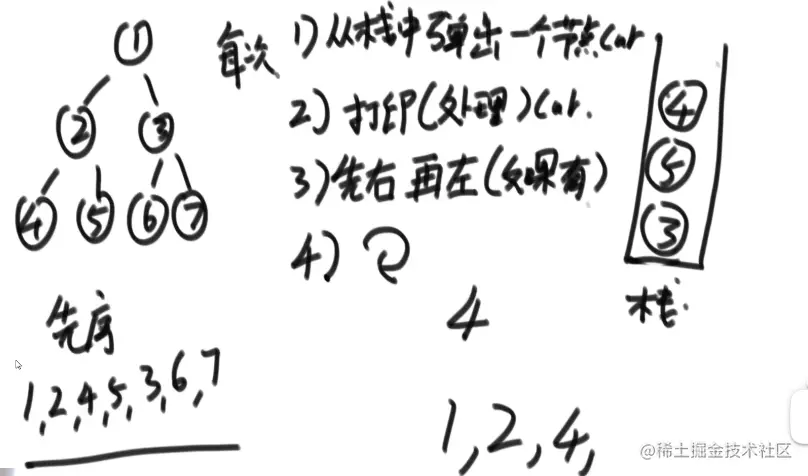 ①
② ③
④ ⑤ ⑥ ⑦
先序
1,2,4,5,3,6,7
每次 1)从栈中弹出一个节点cur
2)打印(处理)cur.
3)先右再左(如果有)
4)
4
1,2,4,
④
⑤
③
栈.
@稀土掘金技术社区